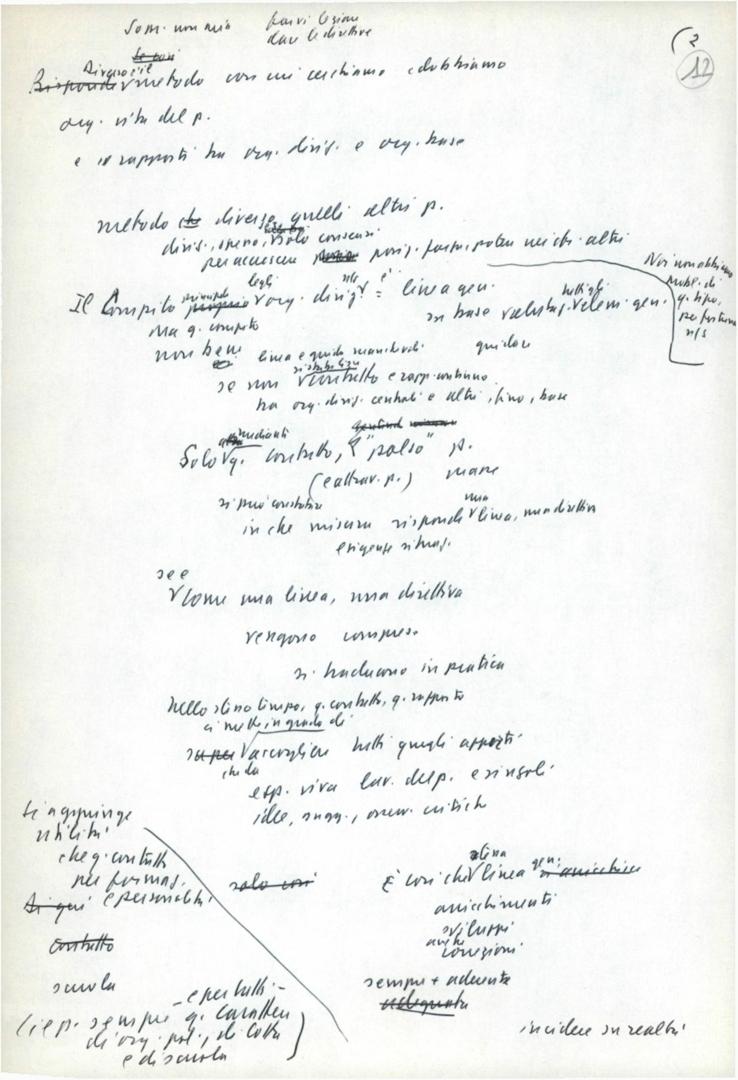 Som. non mia farvi lezione
dare direttive
(2
12
Se così
Risponde metodo con cui cerchiamo e dobbiamo
org. vita del p.
e in rapporti tra org. dirig. e org. base
metodo che diverso quelli altri p.
dirig. solo consensi
per accrescere posiz. potere nei cfr. altri
Noi non abbiamo
probl. di
q. tipo,
per fortuna
n/s
Il Compito principale proprio degli org. dirig. è = linea gen.
in base valutaz. tutti gli elem. gen.
ma q. compito
non bene linea e guida guidare
se non si stabilisce contatto e rapp. continuo
tra org. dirig. centrali e altri, fino, base
Solo mediante q. contatto, "polso" p.
(e attrav. p.) masse
si può constatare
in che misura risponde una linea, una direttiva
esigenze situaz.
se e
come una linea, una direttiva
vengono comprese
si traducono in pratica
Nello stesso tempo, q. contatto, q. rapporto
ci mette in grado di
raccogliere tutti quegli apporti
che da
esp. viva lav. del p. e singoli
idee, sugg., osserv. critiche
Si aggiunge
utilità
che q. contatto
per formaz.
e personalità
Di qui
contatto
scuola
- e per tutti -
(ie p. sempre q. carattere
di org. pol., di lotta
e di scuola)
solo così
È così che stessa linea gen. si arricchisce
arricchimenti
sviluppi
anche
correzioni
sempre + aderente
adeguata
incidere su realtà